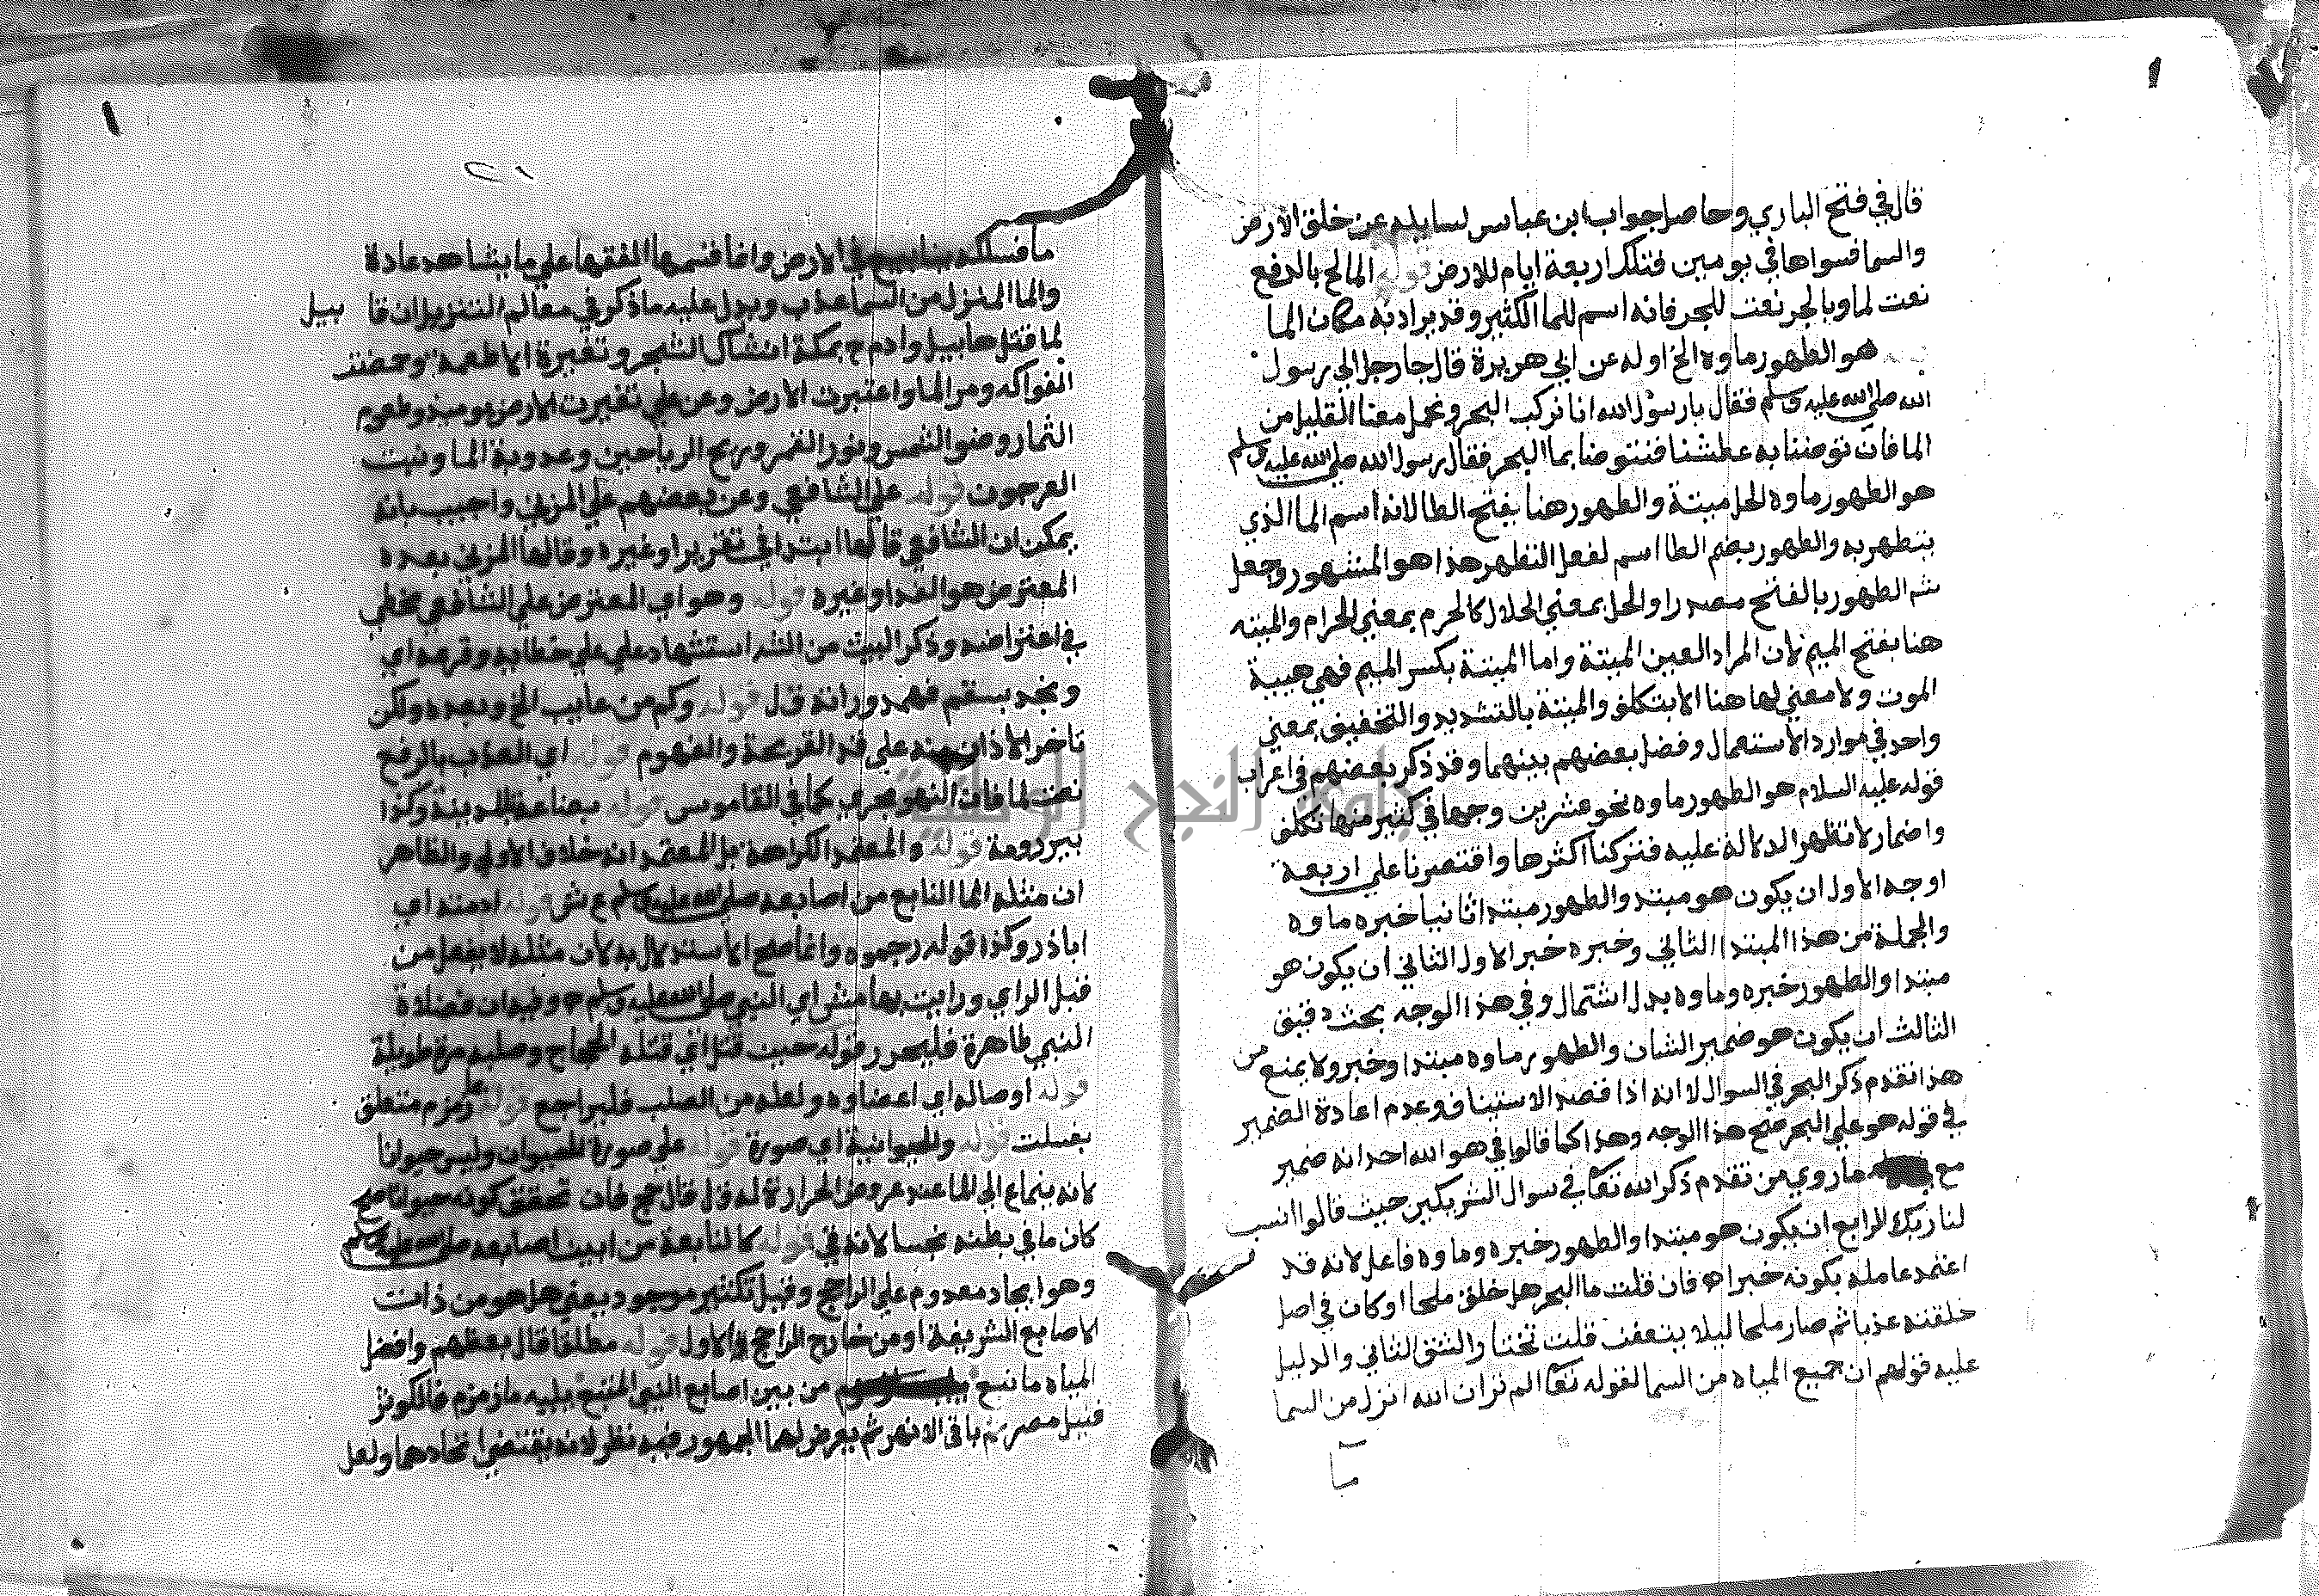 قال في فتح الباري وحاصل جواب ابن عباس لسايله عن خلق الارض
والسما فسواها في يومين فتلك اربعة ايام للارض قوله المالح بالرفع
نعت لما وبالجر نعت للبحر فانه اسم للما الكثير وقد يراد به مكان الما
هو الطهور ماوه الخ اوله عن ابي هريرة قال جا رجل الي رسول
الله صلي الله عليه وسلم فقال يا رسول الله انا نركب البحر ونحمل معنا القليل من
الما فان توضئنا به عطشنا فنتوضا بما البحر فقال رسول الله صلي الله عليه وسلم
هو الطهور ماوه الحل ميتة والطهور هنا بفتح الطا لانه اسم الما الذي
يتطهر به والطهور بضم الطا اسم لفعل التطهر هذا هو المشهور وجعل
ثم الطهور بالفتح مصدرا والحل بمعني الحلال كالحرم بمعني الحرام والميتة
هنا بفتح الميم لان المراد العين الميتة واما الميتة بكسر الميم فهي هيية
الموت ولا معني لها هنا الا بتكلف والميتة بالتشديد والتخفيف بمعني
واحد في موارد الاستعمال وفضل بعضهم بينهما وقد ذكر بعضهم في اعراب
قوله عليه السلام هو الطهور ماوه نحو عشرين وجها في كثير منها تكلف
واضمار لا تظهر الدلالة عليه فتركنا اكثرها واقتصرنا علي اربعة
اوجه الاول ان يكون هو مبتدا والطهور مبتدا ثانيا خبره ماوه
والجملة من هذا المبتدا الثاني وخبره خبر الاول الثاني ان يكون هو
مبتدا والطهور خبره وماوه بدل اشتمال وفي هذا الوجه بحث دقيق
الثالث ان يكون هو ضمير الشان والطهور ماوه مبتدا وخبر ولا يمنع من
هذا تقدم ذكر البحر في السوال لانه اذا قصد الاستيناف وعدم اعادة الضمير
في قوله هو علي البحر صح هذا الوجه وهذا كما قالوا في هو الله احد انه ضمير
مع ما روي من تقدم ذكر الله تعا في سوال المشركين حيث قالوا انسب
لنا ربك الرابع ان يكون هو مبتدا والطهور خبره وماوه فاعل لانه قد
اعتمد عامله بكونه خبرا فان قلت ما البحر هل خلق ملحا او كان في اصل
خلقته عذبا ثم صار ملحا ليلا يتعفن قلت تختا والشق الثاني والدليل
عليه قولهم ان جميع المياه من السما لقوله تعا الم تر ان الله انزل من السما
ما
ما فسلكه ينابيع في الارض وانما قسمها الفقها علي ما يشاهد عادة
والما المنزل من السما عذب ويدل عليه ما ذكر في معالم التنزيل ان قابيل
لما قتل هابيل وادم ح بمكة اشتاك الشجر وتغيرة الاطعمة وحمضت
الفواكه ومر الما واغبرت الارض وعن علي تغيرت الارض يوميذ وطعوم
الثمار وضو الشمس ونور القمر وريح الرياحين وعذوبة الما ونبت
العرجون قوله علي الشافعي وعن بعضهم علي المزني واجيب بانه
يمكن ان الشافعي قالها ابتدا في تقرير او غيره وقالها المزني بعده
المعترض هو الفدا وغيره قوله وهو اي المعترض علي الشافعي مخطي
في اعتراضه وذكر البيت من استشهاد علي علي خطايه وقرعه اي
ونجد بسقم فهمه ورانه ق ل قوله وكم من عايب الخ وبعده ولكن
تاخر الاذان منه علي قدر القريحة والفهوم قوله اي العذب بالرفع
نعت لما فان النهر يجري كما في القاموس قوله بضاعة بالمدينة وكذا
بير رومة قوله والمعتمد الكراهة بل المعتمد انه خلاف الاولي والظاهر
ان مثله الما النابع من اصابعه صلي الله عليه وسلم ع ش قوله ادمته اي
اباذر وكذا قوله رجموه وانما صح الاستدلال به لان مثله لا يفعل من
قبل الراي ورايت بهامش اي النبي صلي الله عليه وسلم وفيه ان فضلاة
النبي طاهرة فليحرر قوله حيث قتل اي قتله الحجاج وصلبه مرة طويلة
قوله اوصاله اي اعضاوه ولعله من الصلب فليراجع قوله زمزم متعلق
بغسلت قوله والحيوانية اي صورة قوله علي صورة الحيوان وليس حيوانا
لانه ينماع الي الما عند عروض الحرارة له ق ل قال حج فان تحقق كونه حيوانا صح
كان ما في بطنه نجسا لانه قي قوله كالنابعة من ابين اصابعه صلي الله عليه وسلم
وهو ايجاد معدوم علي الراجح وقيل تكثير موجود يعني هل هو من ذات
الاصابع الشريفة او من خارج الراجح الاول قوله مطلقا قال بعظهم وافضل
المياه ما نبع من بين اصابع النبي المتبع يليه ما زمزم فالكوثر
فنيل مصر ثم باقي الانهر ثم يعرض لها الجمهور ضه نظر لانه يقتضي اتحادهما ولعل